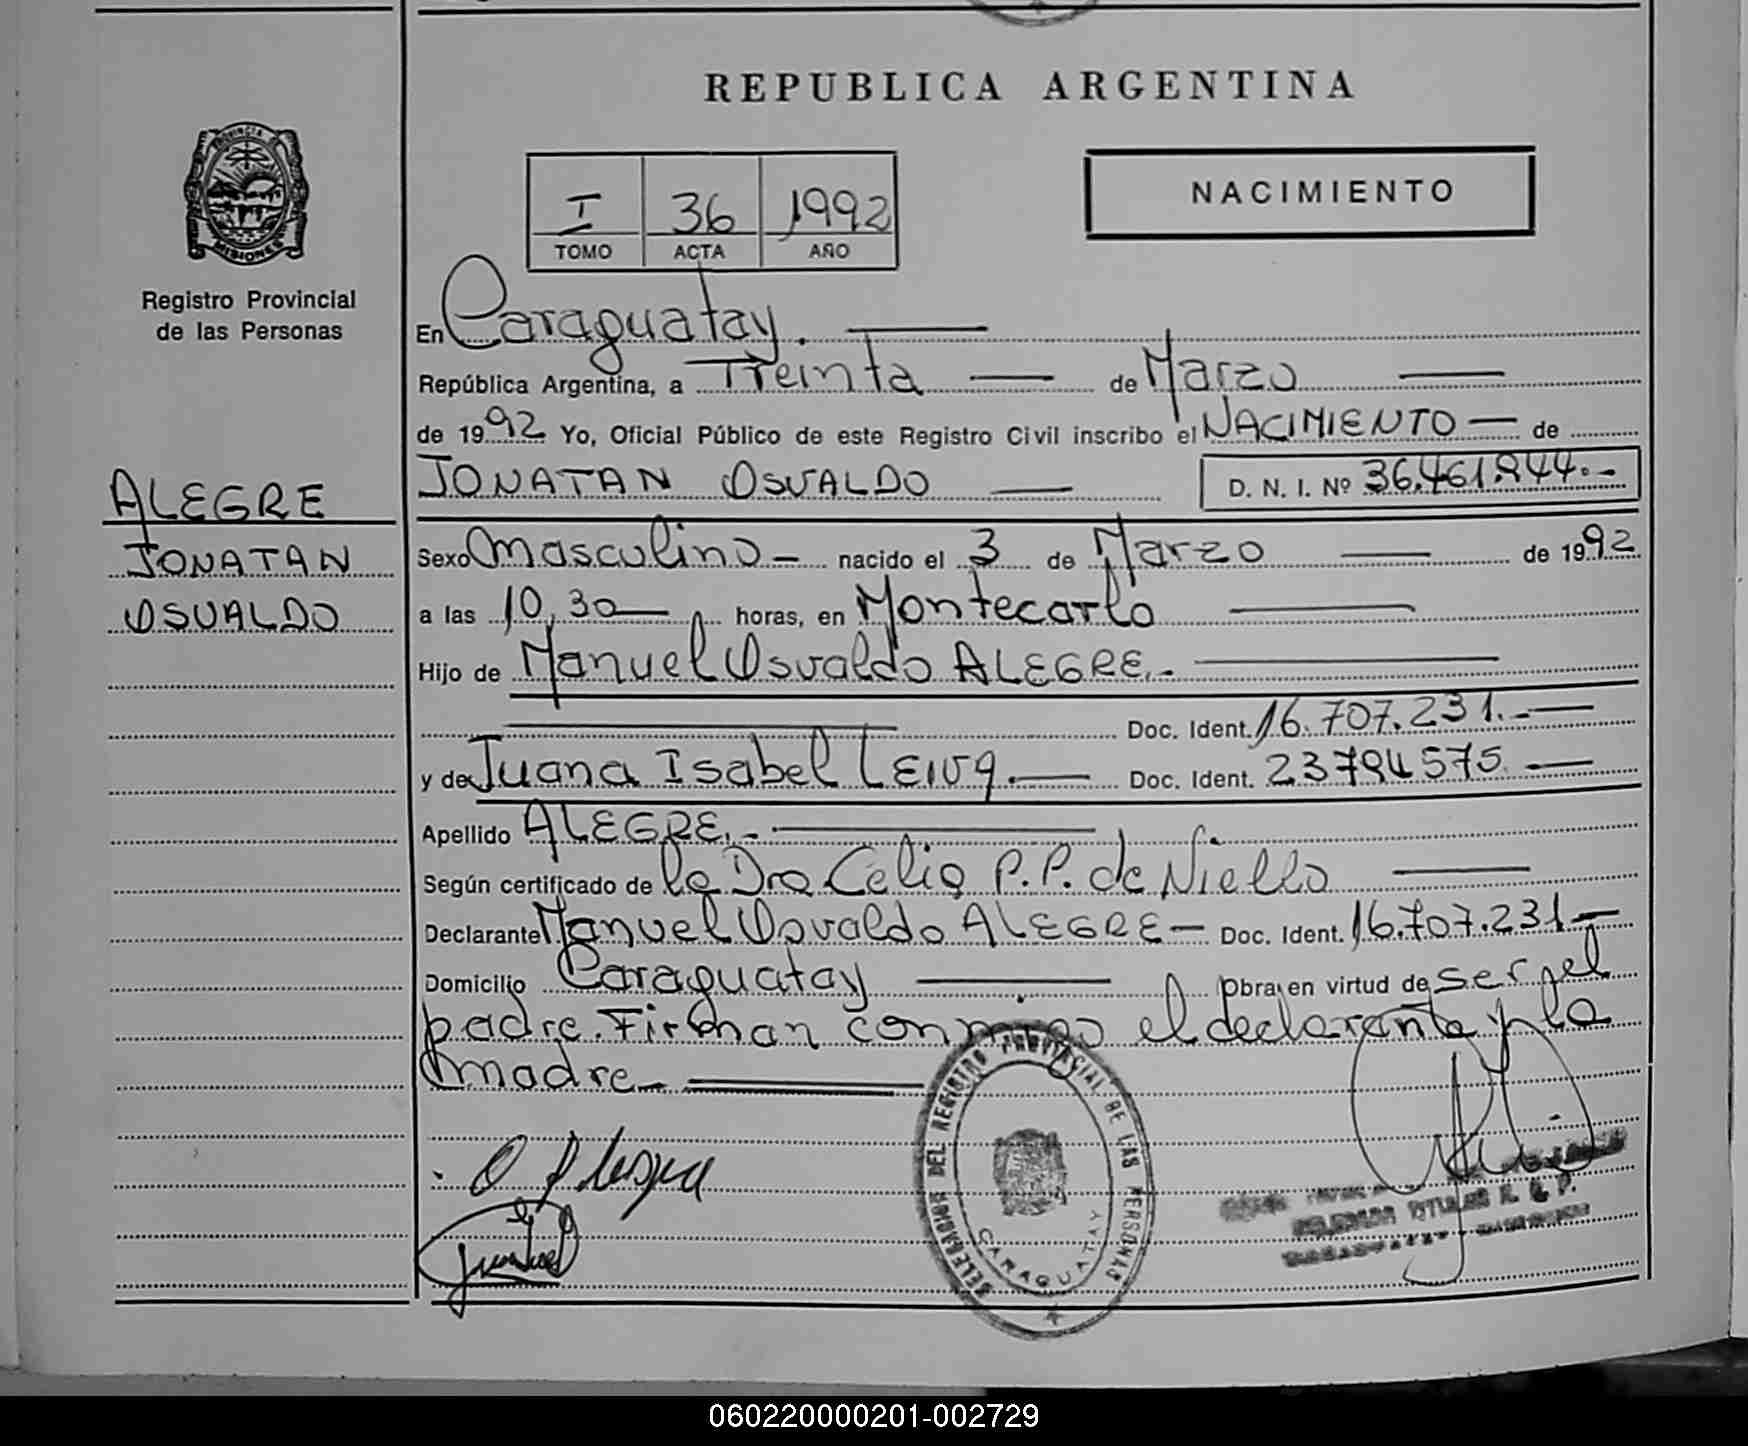 REPUBLICA ARGENTINA
PROVINCIA DE
MISIONES
Registro Provincial
de las Personas
NACIMIENTO
I 36 1992
TOMO ACTA AÑO
En Caraguatay.
República Argentina, a Treinta de Marzo
de 1992 Yo, Oficial Público de este Registro Civil inscribo el NACIMIENTO de
JONATAN OSVALDO D. N. I. Nº 36.461.844.-
ALEGRE
JONATAN
OSVALDO
Sexo Masculino - nacido el 3 de Marzo de 1992
a las 10,30 horas, en Montecarlo
Hijo de Manuel Osvaldo ALEGRE.-
Doc. Ident. 16.707.231.-
y de Juana Isabel Leiva.- Doc. Ident. 23794575
Apellido ALEGRE.-
Según certificado de la Dra Celia P.P. de Niello
Declarante Manuel Osvaldo ALEGRE - Doc. Ident. 16.707.231-
Domicilio Caraguatay Obra en virtud de ser el
padre. Firman conmigo el declarante y la
madre.-
DELEGACION DEL REGISTRO PROVINCIAL DE LAS PERSONAS
CARAGUATAY
DELEGADA TITULAR R. P.
060220000201-002729